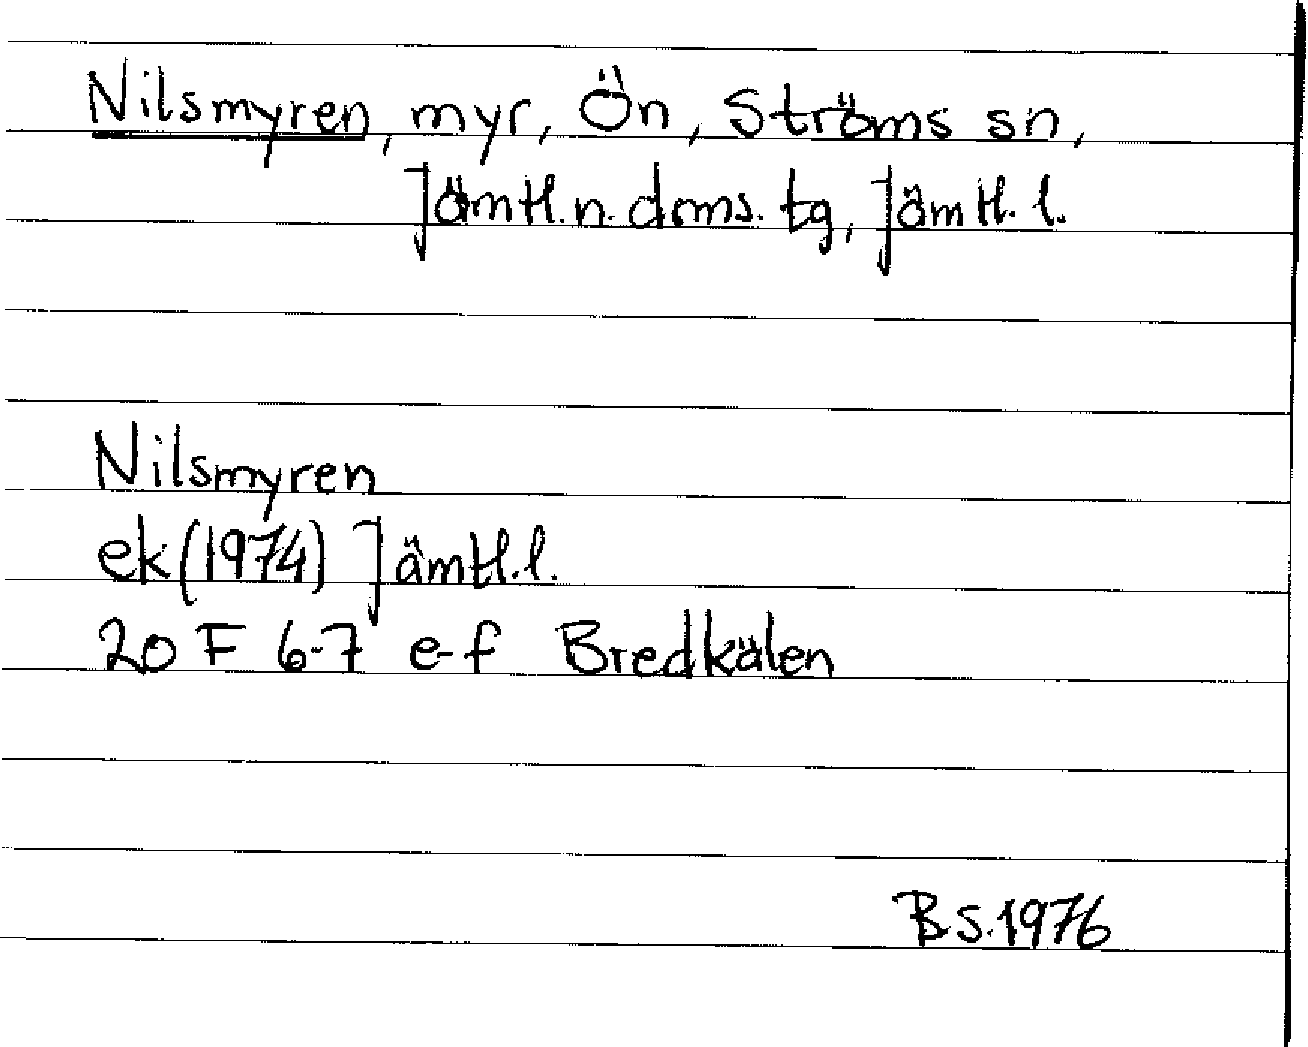 Nilsmyren, myr, Ön, Ströms sn,
Jämtl. n. doms. tg, Jämtl. l.
Nilsmyren
ek (1974) Jämtl. l.
20 F 6-7 e-f Bredkälen
B.S. 1976